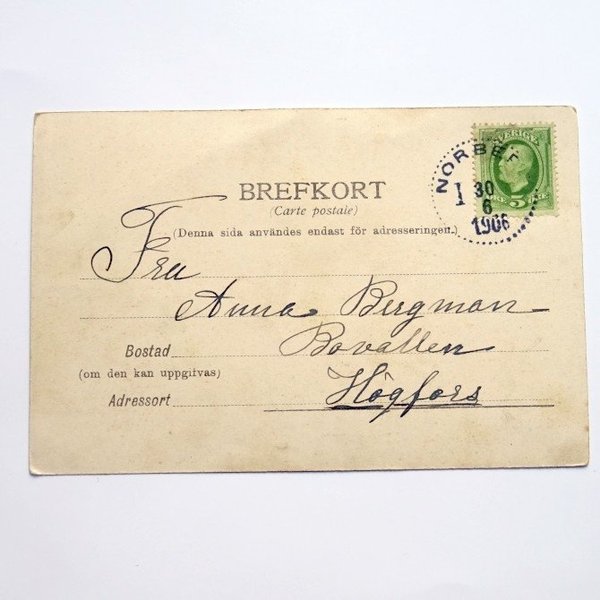 SVERIGE
NORBER
1 30
6
1906
5 ÖRE
BREFKORT
(Carte postale)
(Denna sida användes endast för adresseringen.)
Fru
Anna Bergman
Bostad Bovallen
(om den kan uppgifvas)
Adressort Högfors